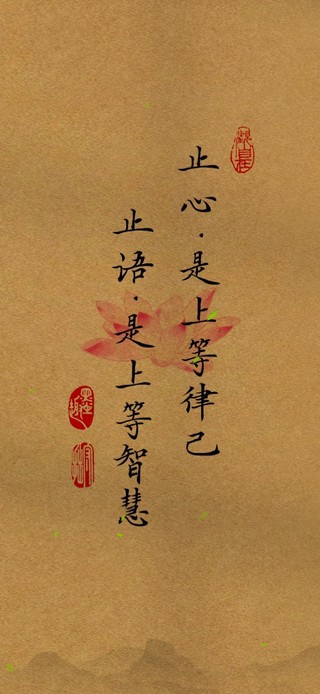 止心·是上等律己
止语·是上等智慧